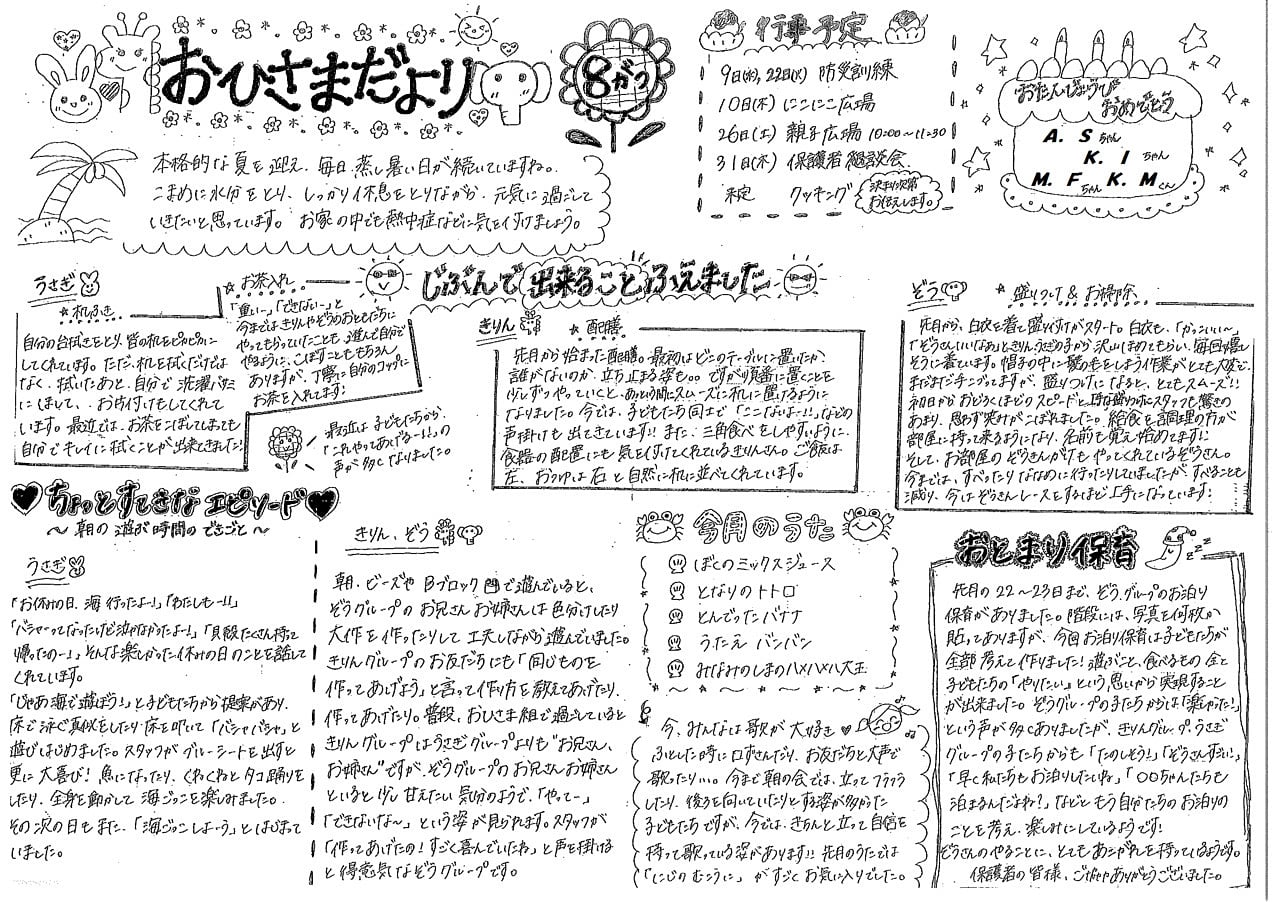 おひさまだより
8がつ
本格的な夏を迎え、毎日、蒸し暑い日が続いていますね。
こまめに水分をとり、しっかり休息をとりながら、元気に過ごして
いきたいと思っています。お家の中でも熱中症などに気を付けましょう。
行事予定
9日(水), 22日(火) 防災訓練
10日(木) にこにこ広場
26日(土) 親子広場 10:00〜11:30
31日(木) 保護者懇談会
未定 クッキング
決まり次第
お伝えします。
おたんじょうび
おめでとう
A. Sちゃん
K. Iちゃん
M. Fちゃん K. Mくん
じぶんで出来ることふえました
うさぎ
★ 机ふき
自分の台拭きをとり、皆の机をピカピカに
してくれています。ただ、机を拭くだけでは
なく、拭いたあと、自分で洗濯バサミ
にして、、お片付けもしてくれて
います。最近では、お茶をこぼしてしまっても
自分でキレイに拭くことが出来てきました!
★ お茶入れ
「重いー」「できないー」と
今まではきりんやぞうのおともだちに
やってもらっていたことも、進んで自分で
やるように、こぼすことももちろん
ありますが、丁寧に自分のコップに
お茶を入れてます!
最近は、子どもたちから、
「これやってあげるー!!」の
声が多くなりました。
きりん
★ 配膳
先月から始まった配膳。最初はどこのテーブルに置いたか、
誰がないのか、立ち止まる姿も。。ですが、順番に置くことを
少しずつやっていくと、あという間にスムーズに机に置けるように
なりました。今では、子どもたち同士で「ここないよー!!」などの
声掛けも出てきています!! また、三角食べをしやすいように、
食器の配置にも気を付けてくれているきりんさん。ご飯は
左、おつゆは右と自然に机に並べてくれています。
ぞう
★ 盛りつけ & お掃除
先月から、白衣を着て盛り付けがスタート。白衣も、「かっこいいー」
「ぞうさんいいなぁ」ときりん、うさぎの子から沢山ほめてもらい、毎回嬉し
そうに着ています。帽子の中に髪の毛をしまう作業がとても大変で、
まだまだ手こずってますが、盛りつけになると、とてもスムーズ!!
初日からおどろくほどのスピードと、盛りつけにスタッフも驚きの
あまり、思わず笑みがこぼれました。給食を調理の方が
部屋に持って来るようになり、名前も覚え始めてます!
そして、お部屋のぞうきんがけもやってくれているぞうさん。
今までは、すべったりななめに行ったりしていましたが、すべることも
減り、今はぞうきんレースをするほど上手になっています!
ちょっとすてきなエピソード
〜 朝の遊び時間のできごと 〜
うさぎ
「お休みの日、海行ったよー!」「わたしもー!!」
「バシャーってなったけど泣かなかったよー!」「貝殻たくさん持って
帰ったのー!」そんな楽しかった休みの日のことを話して
くれています。
「じゃあ海で遊ぼう!」と子どもたちから提案があり、
床で泳ぐ真似をしたり床を叩いて「バシャバシャ」と
遊びはじめました。スタッフがブルーシートを出すと
更に大喜び! 魚になったり、くねくねとタコ踊りを
したり、全身を動かして海ごっこを楽しみました。
その次の日もまた、「海ごっこしよーう」とはじまって
いました。
きりん、ぞう
朝、ビーズやBブロックで遊んでいると、
ぞうグループのお兄さんお姉さんは色分けしたり
大作を作ったりして工夫しながら遊んでいました。
きりんグループのお友だちにも「同じものを
作ってあげよう」と言って作り方を教えてあげたり、
作ってあげたり。普段、おひさま組で過ごしていると
きりんグループはうさぎグループよりも"お兄さん、
お姉さん"ですが、ぞうグループのお兄さんお姉さん
といると少し甘えたい気分のようで、「やってー」
「できないな〜」という姿が見られます。スタッフが
「作ってあげたの!すごく喜んでいたね」と声を掛ける
と得意気なぞうグループです。
今月のうた
ぼくのミックスジュース
となりのトトロ
とんでったバナナ
うたえバンバン
みなみのしまのハメハメハ大王
今、みんなは歌が大好き♥
ふとした時に口ずさんだり、お友だちと大声で
歌ったり!!。今まで朝の会では、立ってフラフラ
したり、後ろを向いていたりとする姿が多かった
子どもたちですが、今では、きちんと立って自信を
持って歌っている姿があります!! 先月のうたでは
「にじのむこうに」がすごくお気に入りでした。
おとまり保育
先月の22〜23日まで、ぞうグループのお泊り
保育がありました。階段には、写真を何枚か
貼ってありますが、今回お泊り保育は子どもたちが
全部考えて作りました! 遊ぶこと、食べるもの全て
子どもたちの「やりたい」という思いから実現すること
が出来ました。ぞうグループの子たちからは「楽しかった!」
という声が多くありましたが、きりんグループ、うさぎ
グループの子たちからも「たのしそう!」「ぞうさんすごい!」
「早く私たちもお泊りしたいね」「○○ちゃんたちも
泊まるんだよね?」などともう自分たちのお泊りの
ことを考え、楽しみにしているようです!
ぞうさんのやることに、とてもあこがれを持っているようです。
保護者の皆様、ご協力ありがとうございました。